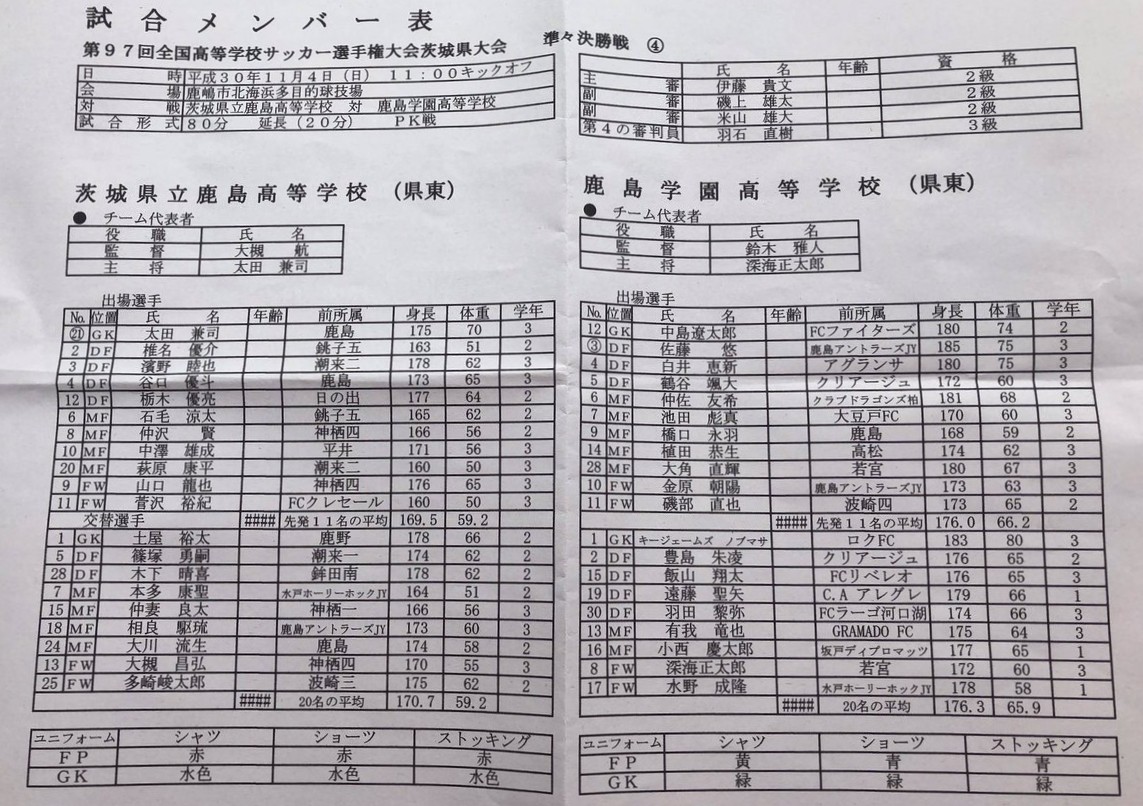 試合メンバー表
第97回全国高等学校サッカー選手権大会茨城県大会 準々決勝戦 ④
日時 平成30年11月4日(日) 11:00キックオフ
会場 鹿嶋市北海浜多目的球技場
対戦 茨城県立鹿島高等学校 対 鹿島学園高等学校
試合形式 80分 延長(20分) PK戦
氏名 年齢 資格
主審 伊藤 貴文 2級
副審 磯上 雄太 2級
副審 米山 雄大 2級
第4の審判員 羽石 直樹 3級
茨城県立鹿島高等学校 (県東)
● チーム代表者
役職 氏名
監督 大槻 航
主将 太田 兼司
出場選手
No. 位置 氏名 年齢 前所属 身長 体重 学年
㉑ GK 太田 兼司 鹿島 175 70 3
2 DF 椎名 優介 銚子五 163 51 2
3 DF 濱野 睦也 潮来二 178 62 3
4 DF 谷口 優斗 鹿島 173 65 3
12 DF 栃木 優亮 日の出 177 64 2
6 MF 石毛 涼太 銚子五 165 62 2
8 MF 仲沢 賢 神栖四 166 56 2
10 MF 中澤 雄成 平井 171 56 3
20 MF 萩原 康平 潮来二 160 50 3
9 FW 山口 龍也 神栖四 176 65 3
11 FW 菅沢 裕紀 FCクレセール 160 50 3
交替選手 #### 先発11名の平均 169.5 59.2
1 GK 土屋 裕太 鹿野 178 66 2
5 DF 篠塚 勇嗣 潮来一 174 62 2
28 DF 木下 晴喜 鉾田南 178 62 2
7 MF 本多 康聖 水戸ホーリーホックJY 164 51 2
15 MF 仲妻 良太 神栖一 166 56 3
18 MF 相良 駆琉 鹿島アントラーズJY 173 60 3
24 MF 大川 流生 鹿島 174 58 2
13 FW 大槻 昌弘 神栖四 170 55 3
25 FW 多崎崚太郎 波崎三 175 62 2
#### 20名の平均 170.7 59.2
ユニフォーム シャツ ショーツ ストッキング
FP 赤 赤 赤
GK 水色 水色 水色
鹿島学園高等学校 (県東)
● チーム代表者
役職 氏名
監督 鈴木 雅人
主将 深海正太郎
出場選手
No. 位置 氏名 年齢 前所属 身長 体重 学年
12 GK 中島遼太郎 FCファイターズ 180 74 2
③ DF 佐藤 悠 鹿島アントラーズJY 185 75 3
4 DF 白井 恵新 アグランサ 180 75 3
5 DF 鶴谷 颯大 クリアージュ 172 60 3
6 MF 仲佐 友希 クラブドラゴンズ柏 181 68 2
7 MF 池田 彪真 大豆戸FC 170 60 3
9 MF 橋口 永羽 鹿島 168 59 2
14 MF 植田 恭生 高松 174 62 3
28 MF 大角 直輝 若宮 180 67 3
10 FW 金原 朝陽 鹿島アントラーズJY 173 63 3
11 FW 磯部 直也 波崎四 173 65 2
#### 先発11名の平均 176.0 66.2
1 GK キージェームズ ノブマサ ロクFC 183 80 3
2 DF 豊島 朱凌 クリアージュ 176 65 2
15 DF 飯山 翔太 FCリベレオ 176 65 3
19 DF 遠藤 聖矢 C.A アレグレ 179 66 1
30 DF 羽田 黎弥 FCラーゴ河口湖 174 66 3
13 MF 有我 竜也 GRAMADO FC 175 64 3
16 MF 小西 慶太郎 坂戸ディプロマッツ 177 65 1
8 FW 深海正太郎 若宮 172 60 3
17 FW 水野 成隆 水戸ホーリーホックJY 178 58 1
#### 20名の平均 176.3 65.9
ユニフォーム シャツ ショーツ ストッキング
FP 黄 青 青
GK 緑 緑 緑